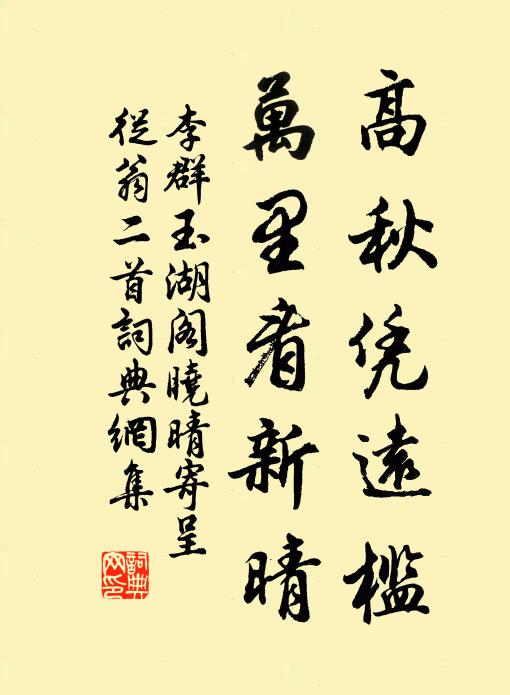 高秋凭遠檻
萬里看新晴
李群玉湖阁曉晴寄呈
從翁二首詞典網集
詞典
网印